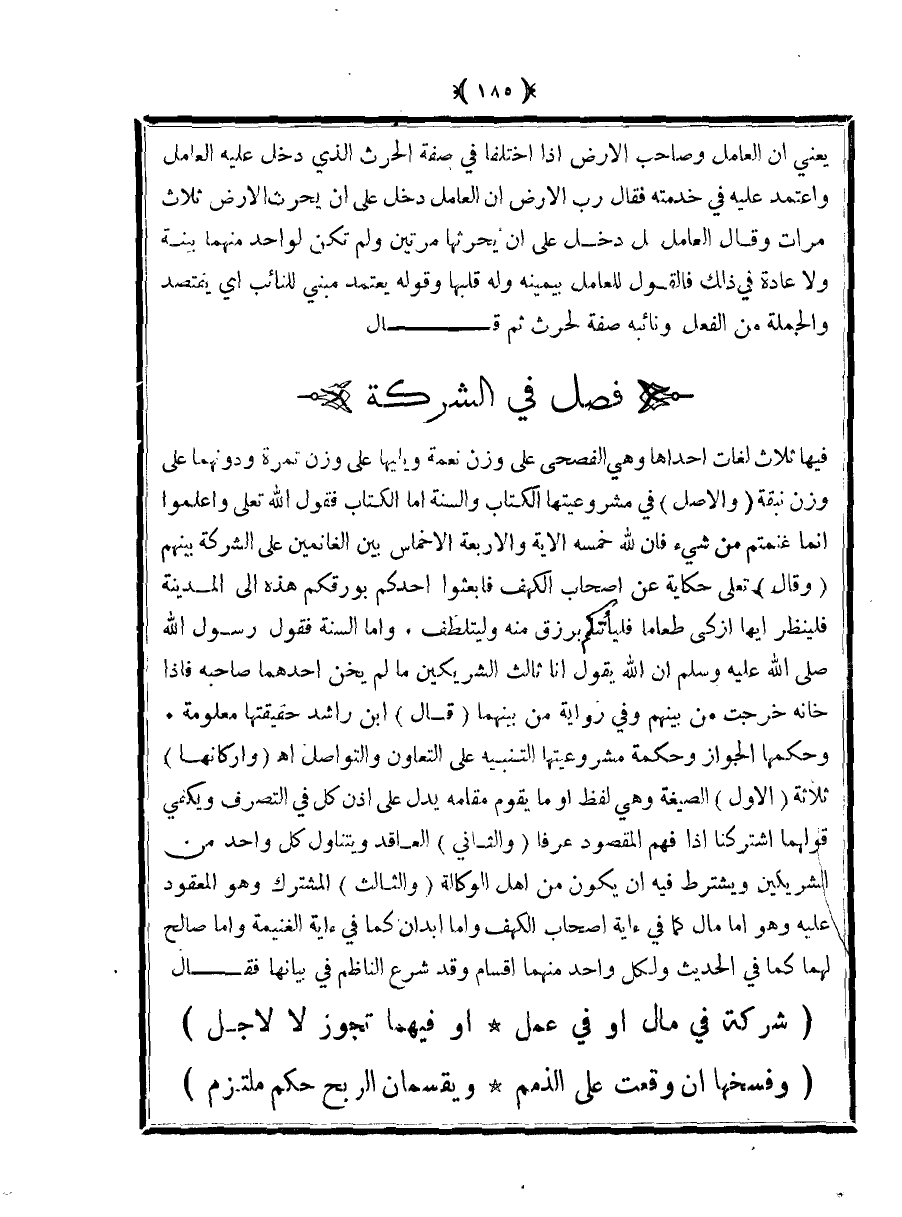 ﴿ ١٨٥ ﴾
يعني ان العامل وصاحب الارض اذا اختلفا في صفة الحرث الذي دخل عليه العامل
واعتمد عليه في خدمته فقال رب الارض ان العامل دخل على ان يحرث الارض ثلاث
مرات وقال العامل بل دخل على ان يحرثها مرتين ولم تكن لواحد منهما بينة
ولا عادة في ذلك فالقول للعامل بيمينه وله قلبها وقوله يعتمد مبني للنائب اي يقتصد
والجملة من الفعل ونائبه صفة لحرث ثم قال
فصل في الشركة
فيها ثلاث لغات احداها وهي الفصحى على وزن نعمة ويليها على وزن تمرة ودونهما على
وزن نبقة ( والاصل ) في مشروعيتها الكتاب والسنة اما الكتاب فقول الله تعلى واعلموا
انما غنمتم من شيء فان لله خمسه الاية والاربعة الاخماس بين الغانمين على الشركة بينهم
( وقال ) تعلى حكاية عن اصحاب الكهف فابعثوا احدكم بورقكم هذه الى المدينة
فلينظر ايها ازكى طعاما فليأتكم برزق منه وليتلطف . واما السنة فقول رسول الله
صلى الله عليه وسلم ان الله يقول انا ثالث الشريكين ما لم يخن احدهما صاحبه فاذا
خانه خرجت من بينهم وفي رواية من بينهما ( قال ) ابن راشد حقيقتها معلومة .
وحكمها الجواز وحكمة مشروعيتها التنبيه على التعاون والتواصل اه ( واركانها )
ثلاثة ( الاول ) الصيغة وهي لفظ او ما يقوم مقامه يدل على اذن كل في التصرف ويكفي
قولهما اشتركنا اذا فهم المقصود عرفا ( والثاني ) العاقد ويتناول كل واحد من
الشريكين ويشترط فيه ان يكون من اهل الوكالة ( والثالث ) المشترك وهو المعقود
عليه وهو اما مال كما في ءاية اصحاب الكهف واما ابدان كما في ءاية الغنيمة واما صالح
لهما كما في الحديث ولكل واحد منهما اقسام وقد شرع الناظم في بيانها فقال
( شركة في مال او في عمل * او فيهما تجوز لا لاجل )
( وفسخها ان وقعت على الذمم * ويقسمان الربح حكم ملتزم )